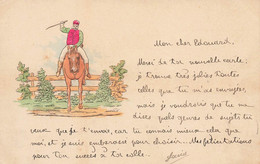 Mon cher Edouard,
Merci de ta nouvelle carte,
je trouve très jolies toutes
celles que tu m'as envoyées,
mais je voudrais que tu me
dises quels genres de sujets tu
veux que je t'envoie, car tu connais mieux cela que
moi, et je suis embarrassé pour choisir. Mes félicitations
pour ton succès à